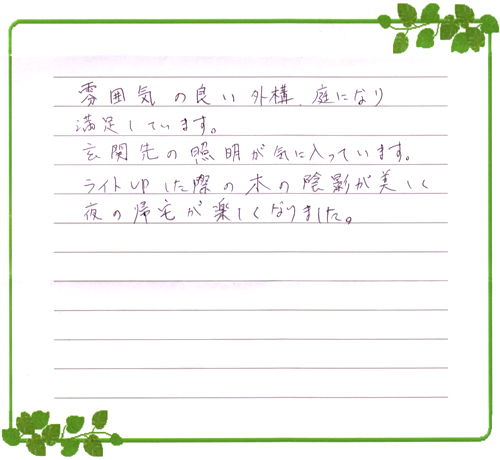 雰囲気の良い外構、庭になり
満足しています。
玄関先の照明が気に入っています。
ライトUPした際の木の陰影が美しく
夜の帰宅が楽しくなりました。